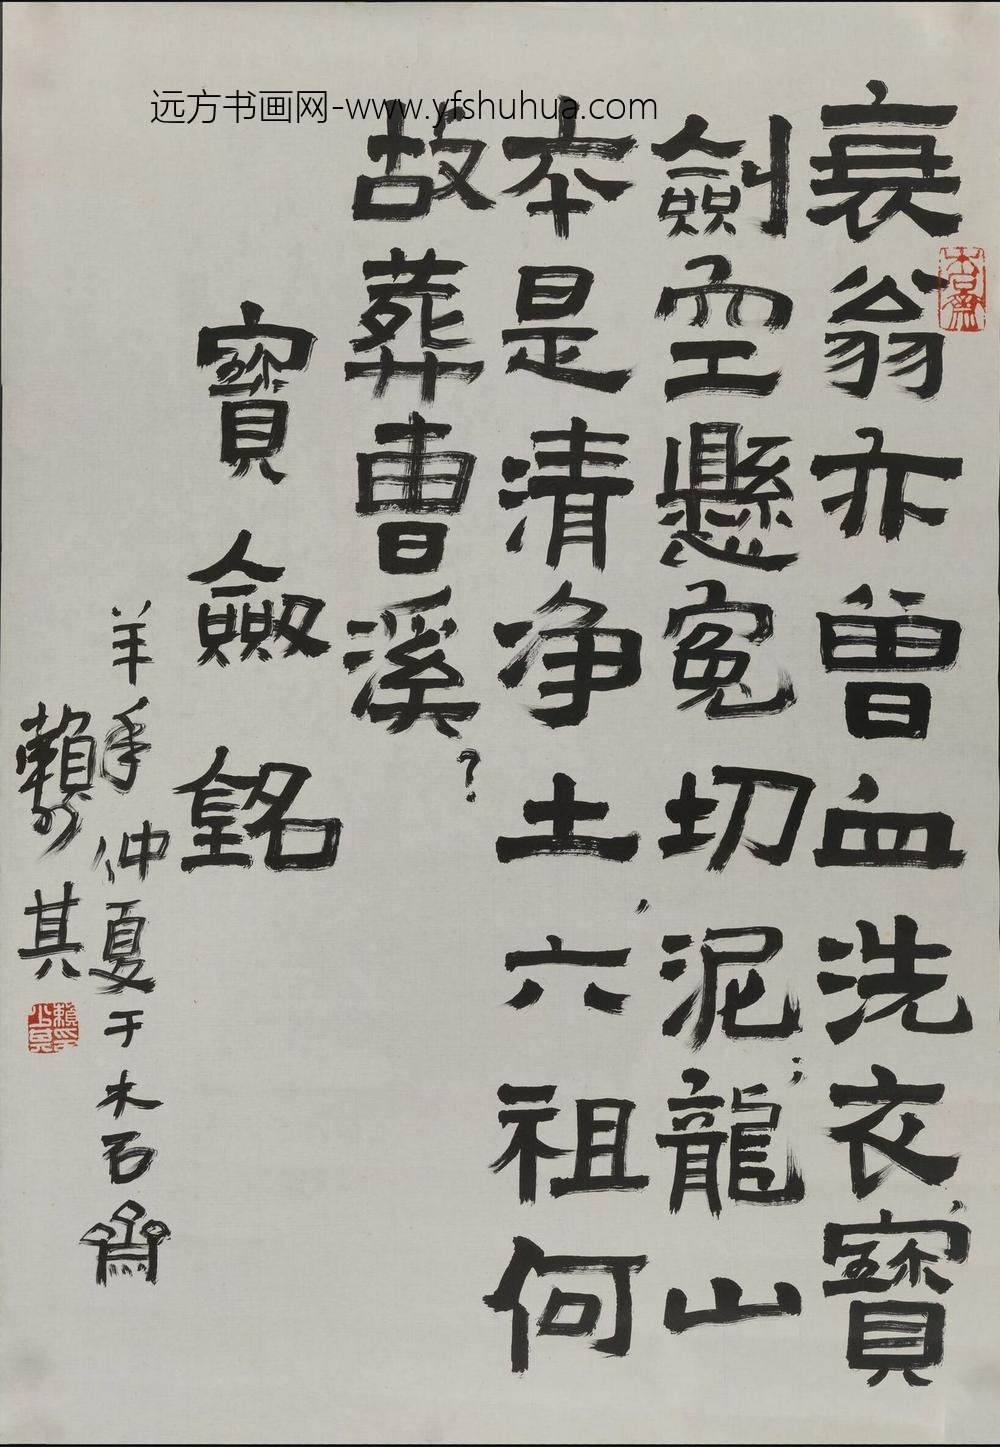 远方书画网-www.yfshuhua.com
衰翁亦曾血洗衣，寶
劍空懸冤切泥；龍山
本是清净土，六祖何
故葬曹溪？
寶劍銘
羊年仲夏于木石齋
賴少其
木石齋